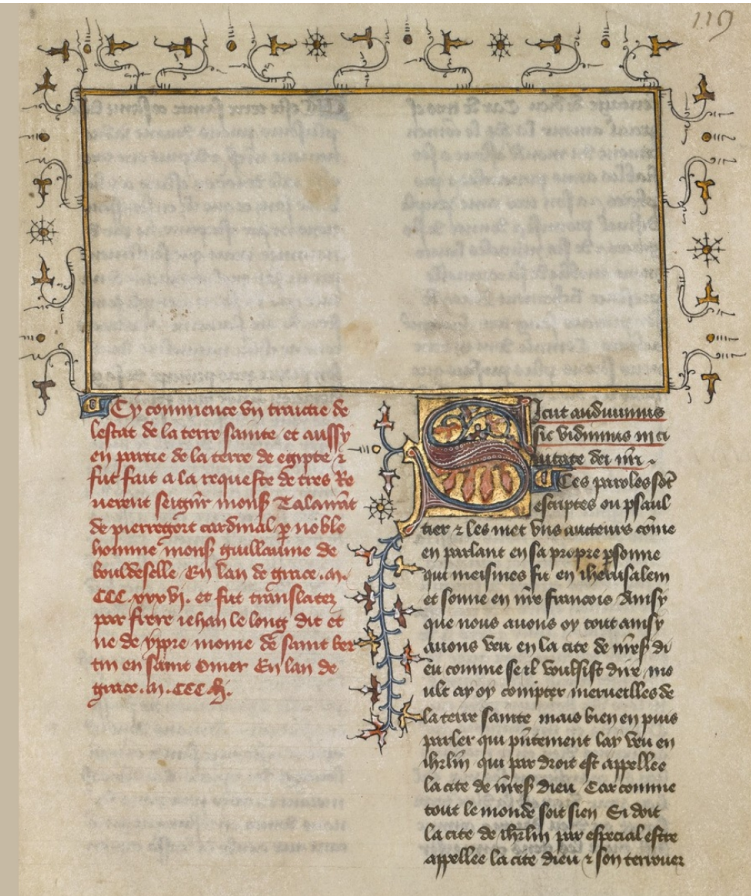 119
Cy commence vn traictie de
lestat de la terre sainte et aussy
en partie de la terre de egypte ⁊
fut fait a la requeste de tres Re
uerent seigñr mons̃ Talairãt
de pierregort cardinal ꝑ noble
homme mons̃ guillaume de
bouldeselle. En lan de grace .m.
CCC. xxxvi. et fut translatez
par frere iehan le long dit et
ne de yppre moine de saint ber
tin en saint Omer En lan de
grace .m. CCC.
Sicut audiuimus
sic vidimus in ci
uitate dei nr̃i.
Ces paroles sõt
escriptes ou psaul
tier ⁊ les met vns aucteurs cõme
en parlant en sa propre ꝑsonne
qui meismes fu en iherusalem
et sonne en nr̃e francois Ainsy
que nous auons oy tout ainsy
auons veu en la cite de nr̃es di
eu comme se il voulsist dire, mo
ult ay oy compter merueilles de
la terre sainte mais bien en puis
parler qui pñtement lay veu en
ihrl̃m qui par droit est appellee
la cite de nr̃es dieu Car comme
tout le monde soit sien Si doit
la cite de ihrl̃m par especial estre
appellee la cite dieu ⁊ son terrouer